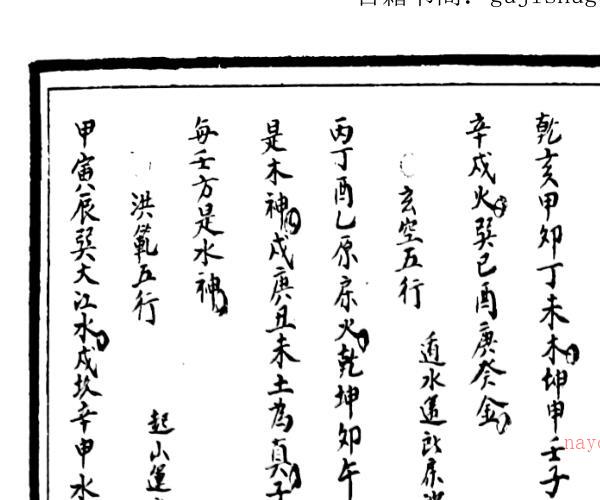 乾亥甲卯丁未木坤申壬子
辛戌火巽巳酉庚癸金
玄空五行
道水運
丙丁酉乙原屬火乾坤卯午
是木神戌庚丑未土為真子
每壬方是水神
洪範五行
起山運
甲寅辰巽大江水戌坎辛申水
nayo